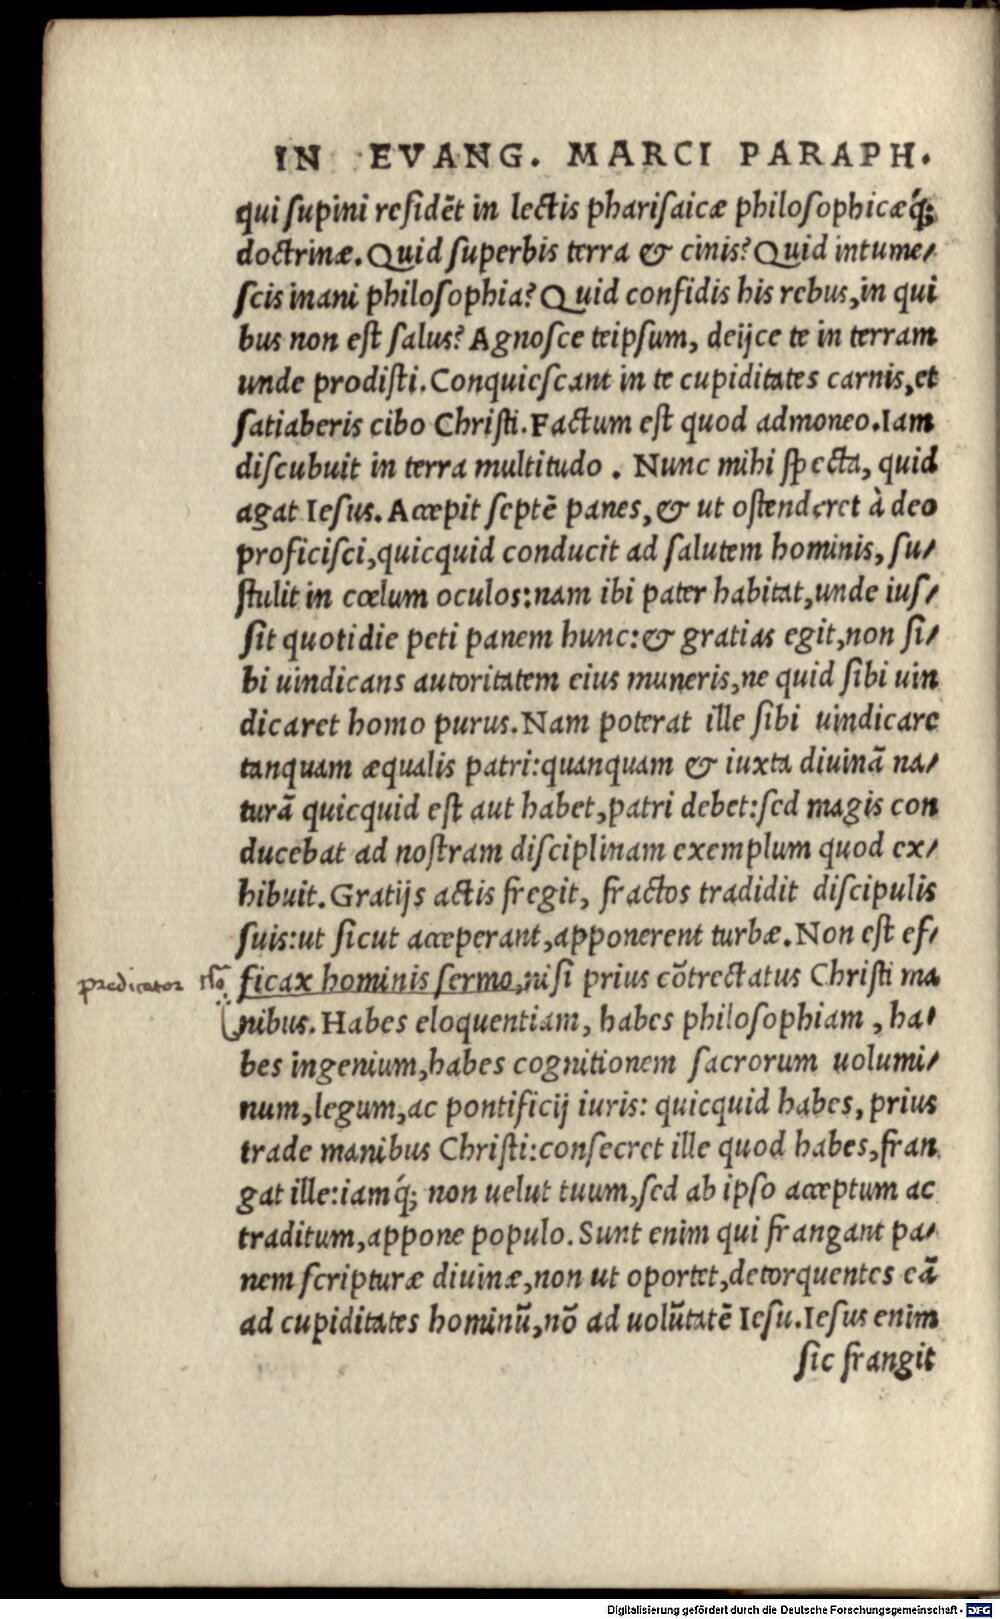 IN EVANG. MARCI PARAPH.
qui supini residēt in lectis pharisaicæ philosophicæq́;
doctrinæ. Quid superbis terra & cinis? Quid intume/
scis inani philosophia? Quid confidis his rebus, in qui
bus non est salus? Agnosce teipsum, deijce te in terram
unde prodisti. Conquiescant in te cupiditates carnis, et
satiaberis cibo Christi. Factum est quod admoneo. Iam
discubuit in terra multitudo. Nunc mihi specta, quid
agat Iesus. Accepit septē panes, & ut ostenderet à deo
proficisci, quicquid conducit ad salutem hominis, su/
stulit in cœlum oculos: nam ibi pater habitat, unde ius/
sit quotidie peti panem hunc: & gratias egit, non si/
bi uindicans autoritatem eius muneris, ne quid sibi uin
dicaret homo purus. Nam poterat ille sibi uindicare
tanquam æqualis patri: quanquam & iuxta diuinā na/
turā quicquid est aut habet, patri debet: sed magis con
ducebat ad nostram disciplinam exemplum quod ex/
hibuit. Gratijs actis fregit, fractos tradidit discipulis
suis: ut sicut acceperant, apponerent turbæ. Non est ef/
predicator
ficax hominis sermo, nisi prius cōtrectatus Christi ma
nibus. Habes eloquentiam, habes philosophiam, ha/
bes ingenium, habes cognitionem sacrorum uolumi/
num, legum, ac pontificij iuris: quicquid habes, prius
trade manibus Christi: consecret ille quod habes, fran
gat ille: iamq́; non uelut tuum, sed ab ipso acceptum ac
traditum, appone populo. Sunt enim qui frangant pa/
nem scripturæ diuinæ, non ut oportet, detorquentes eā
ad cupiditates hominū, nō ad uolūtatē Iesu. Iesus enim
sic frangit
Digitalisierung gefördert durch die Deutsche Forschungsgemeinschaft - DFG